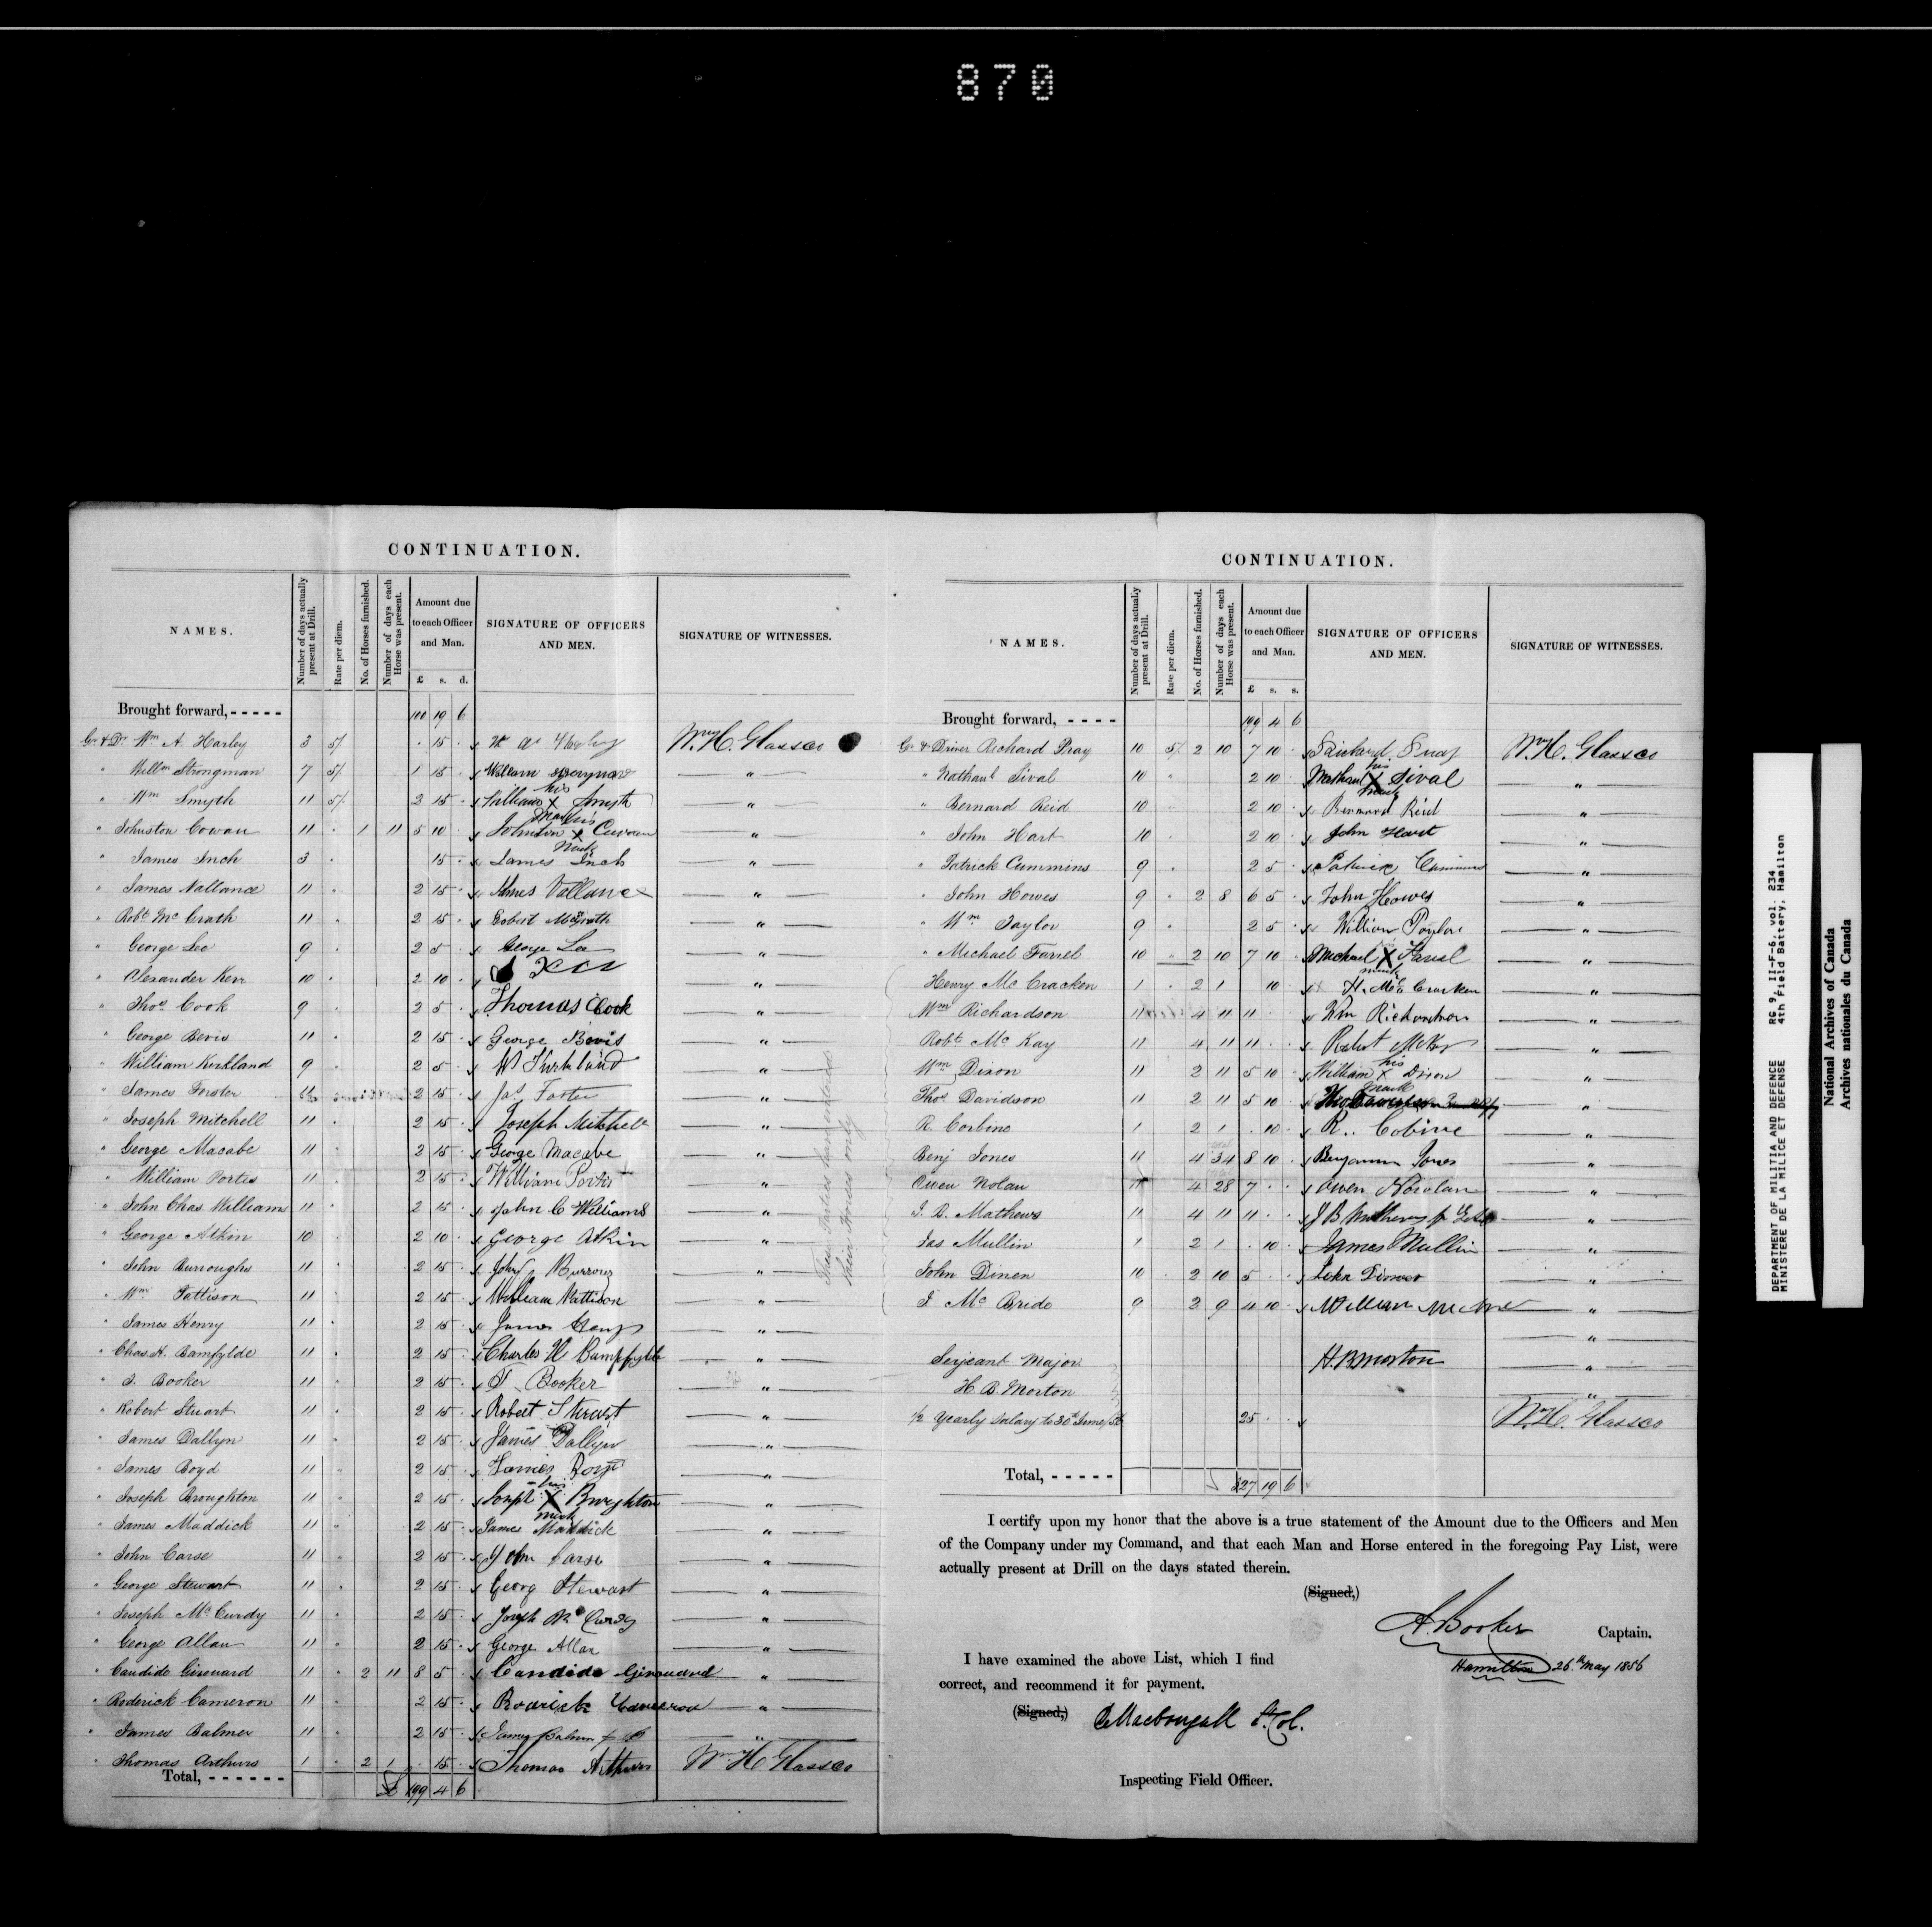 870
CONTINUATION.
NAMES. Number of days actually present at Drill. Rate per diem. No. of Horses furnished. Number of days each Horse was present. Amount due to each Officer and Man. SIGNATURE OF OFFICERS AND MEN. SIGNATURE OF WITNESSES.
£ s. d.
Brought forward, - - - - - 100 19 6
Gr & Dr Wm A. Harley 3 5/ . 15 . Wm H. Glassco
" Willm Strongman 7 5/ 1 15 . William "
" Wm Smyth 11 5/ 2 15 . William his X mark Smyth "
" Johnston Cowan 11 " 1 11 5 10 . Johnston his X mark Cuwan "
" James Inch 3 " 15 . James Inch "
" James Vallance 11 " 2 15 . James Vallance "
" Robt McGrath 11 " 2 15 . Robert McGrath "
" George Lee 9 " 2 5 . George Lee "
" Alexander Kerr 10 " 2 10 . Kerr "
" Thos Cook 9 " 2 5 . Thomas Cook "
" George Bevis 11 " 2 15 . George Bevis "
" William Kirkland 9 " 2 5 . W Kirkland "
" James Forster 11 " 2 15 . Jas Foster "
" Joseph Mitchell 11 " 2 15 . Joseph Mitchell "
" George Macabe 11 " 2 15 . George Macabe "
" William Portis 11 " 2 15 . William Portis "
" John Chas. Williams 11 " 2 15 . John C Williams "
" George Atkin 10 " 2 10 . George Atkin "
" John Burroughs 11 " 2 15 . John Burrows "
" Wm Pattison 11 " 2 15 . William Pattison "
" James Henry 11 " 2 15 . James Henry "
" Chas. H. Bamfylde 11 " 2 15 . Charles H Bampfylde "
" T. Booker 11 " 2 15 . T Booker "
" Robert Stuart 11 " 2 15 . Robert Stuart "
" James Dallyn 11 " 2 15 . James Dallyn "
" James Boyd 11 " 2 15 . James Boyd "
" Joseph Broughton 11 " 2 15 . Joseph his X mark Broughton "
" James Maddick 11 " 2 15 . James Maddick "
" John Carse 11 " 2 15 . John Carse "
" George Stewart 11 " 2 15 . Georg Stewart "
" Joseph McCurdy 11 " 2 15 . Joseph McCurdy "
" George Allan 11 " 2 15 . George Allan "
" Candide Girouard 11 " 2 11 8 5 . Candide Girouard "
" Roderick Cameron 11 " 2 15 . Roderick Cameron "
" James Balmer 11 " 2 15 . James Balmer "
" Thomas Arthurs 1 " 2 1 . 15 . Thomas Arthurs Wm H Glassco
Total, - - - - - - £ 199 4 6
CONTINUATION.
NAMES. Number of days actually present at Drill. Rate per diem. No. of Horses furnished. Number of days each Horse was present. Amount due to each Officer and Man. SIGNATURE OF OFFICERS AND MEN. SIGNATURE OF WITNESSES.
£ s. s.
Brought forward, - - - - 199 4 6
Gr & Driver Richard Pray 10 5/ 2 10 7 10 . Wm H. Glassco
" Nathanl Sival 10 " 2 10 . Nathanl his X mark Sival "
" Bernard Reid 10 2 10 . Bernard Reid "
" John Hart 10 . 2 10 . John Hart "
" Patrick Cummins 9 . 2 5 . Patrick Cummins "
" John Howes 9 " 2 8 6 5 . John Howes "
" Wm Taylor 9 " 2 5 . William Taylor "
" Michael Farrel 10 " 2 10 7 10 . Michael X mark "
Henry McCracken 1 . 2 1 10 . H. McCracken "
Wm Richardson 11 4 11 11 . . Wm Richardson "
Robt McKay 11 4 11 11 . . Robert McKay "
Wm Dixon 11 2 11 5 10 . William his X mark Dixon "
Thos Davidson 11 2 11 5 10 . "
R Corbino 1 2 1 . 10 . R.. Cobine "
Benj Jones 11 4 34 8 10 . Benjamin Jones "
Owen Nolan 11 4 28 7 . . Owen Nowlan "
J. B. Mathews 11 4 11 11 . . J B Mathews "
Jas Mullin 1 2 1 . 10 . James Mullin "
John Dinen 10 . 2 10 5 . . John "
J McBride 9 2 9 4 10 . William "
These Parties have entered their Horses only
Serjeant Major H. B. Morton "
H. B. Morton
1/2 Yearly Salary to 30th June/56 25 . . Wm H. Glassco
Total, - - - - - £ 327 19 6
I certify upon my honor that the above is a true statement of the Amount due to the Officers and Men
of the Company under my Command, and that each Man and Horse entered in the foregoing Pay List, were
actually present at Drill on the days stated therein.
(Signed,)
A. Booker Captain.
Hamilton 26th May 1856
I have examined the above List, which I find
correct, and recommend it for payment.
(Signed,) MacDougall Lt. Col.
Inspecting Field Officer.
DEPARTMENT OF MILITIA AND DEFENCE RG 9, II-F-6, vol. 234
MINISTERE DE LA MILICE ET DEFENSE 4th Field Battery, Hamilton
National Archives of Canada
Archives nationales du Canada